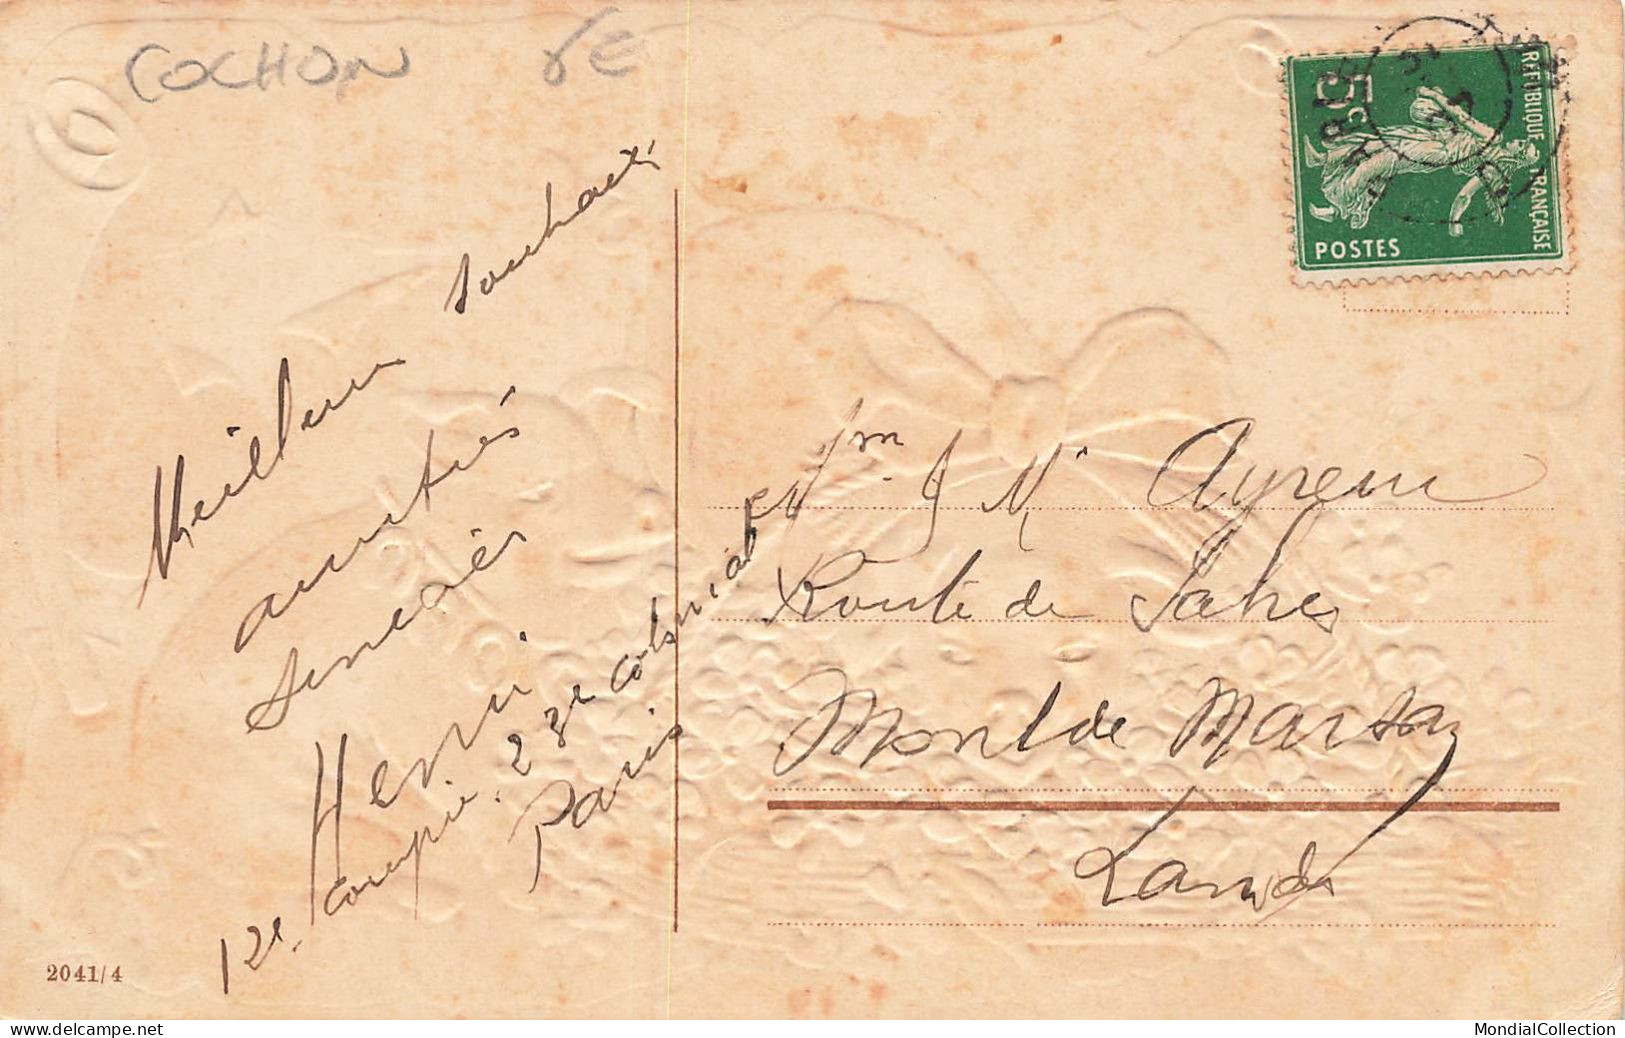 COCHON 8€
Meilleurs souhaits
amitiés
sincères
Henri
12e compie. 23e colonial
Paris
RÉPUBLIQUE FRANÇAISE
5c
POSTES
PARIS
J
Route de Sabres
Mont de Marsan
Landes
2041/4
delcampe.net
MondialCollection